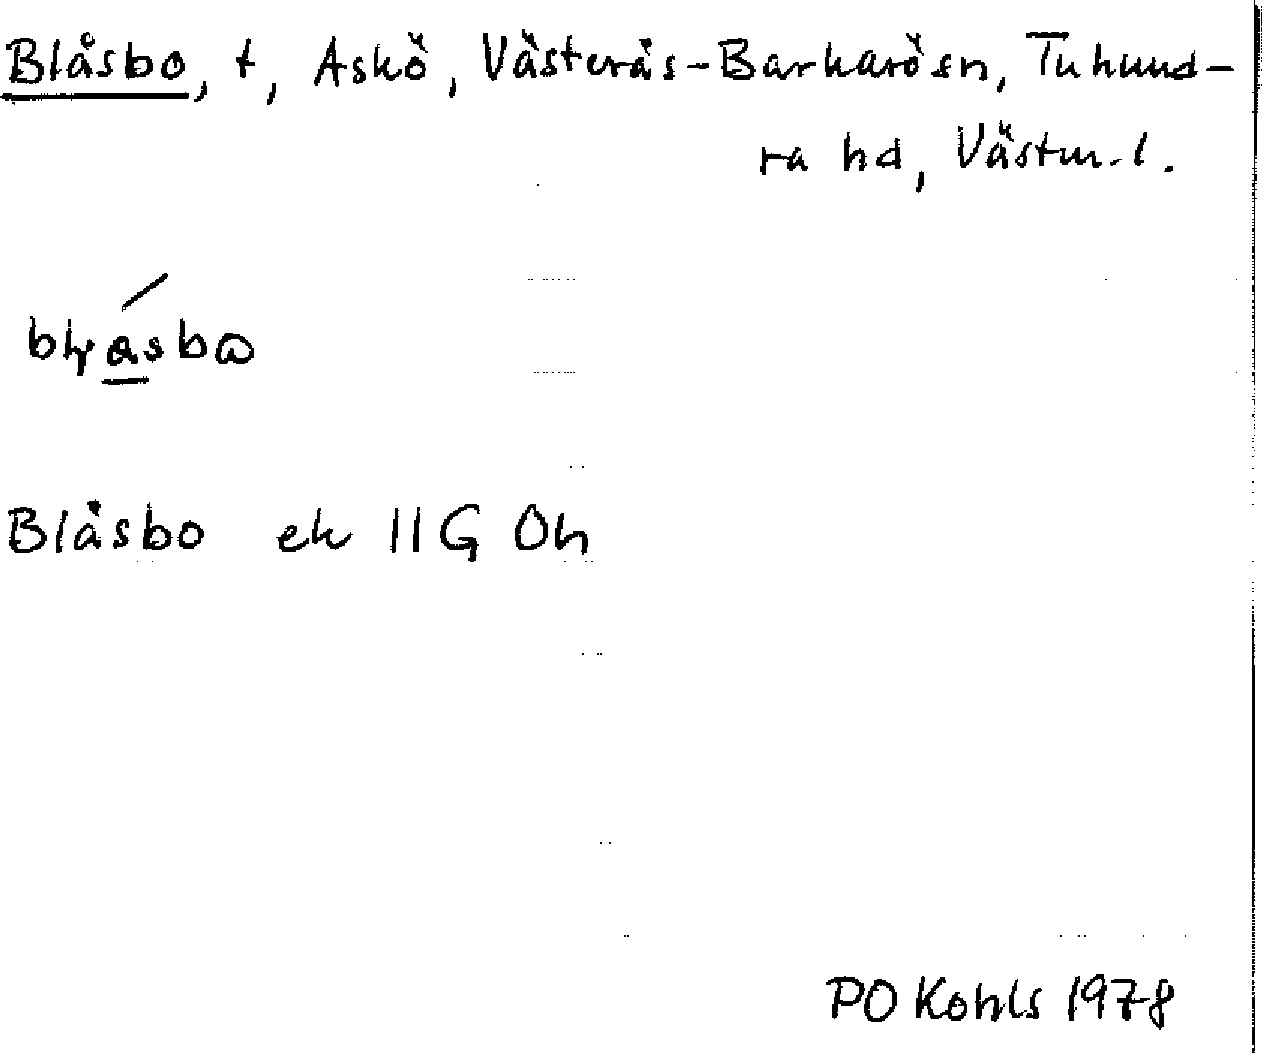 Blåsbo, t, Askö, Västerås-Barkarö sn, Tuhund-
ra hd, Västm. l.
Blåsbo ek 11G Oh
PO Kohls 1978